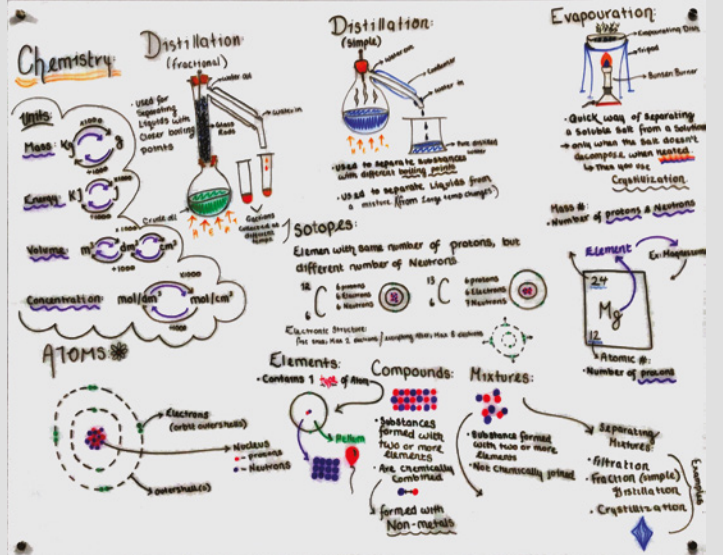 Chemistry:
Units:
x1000
Mass: Kg g
÷1000
x1000
Energy: KJ J
÷1000
Volume: m³ dm³ cm³
÷1000
Concentration: mol/dm³ mol/cm³
÷1000
Distillation:
(fractional)
• Used for
Separating
Liquids with
Closer boiling
points
water out
water in
Glass
Rods
Crude oil
Collected at
different
Temps
Distillation:
(simple)
water out
Condenser
water in
Pure distilled
water
• Used to separate substances
with different boiling points
• Used to separate Liquids from
a mixture (from Large temp changes)
Evapouration:
Evapourating Dish
Tripod
Bunsen Burner
• Quick way of separating
a soluble salt from a solution
→ only when the salt doesn't
decompose, when heated
↳ Then you use
Crystilization
Isotopes:
Elemen with same number of protons, but
different number of Neutrons
12 C 6
6 protons
6 Electrons
6 Neutrons
13 C 6
6 protons
6 Electrons
7 Neutrons
Electronic Structure:
Mass #:
• Number of protons & Neutrons
Element
Ex: Magnesium
24
Mg
12
Atomic #:
• Number of protons
ATOMS
Electrons
(orbit outershells)
Nucleus
- protons
- Neutrons
outershell(s)
Elements:
• Contains 1 type of Atom
Compounds:
• Substances
formed with
two or more
elements
• Are chemically
Combined
formed with
Non-metals
Mixtures:
• Substance formed
with two or more
elements
• Not chemically joined
Separating
Mixtures:
• Filtration
• Fraction (simple)
Distillation
• Crystilization
Examples